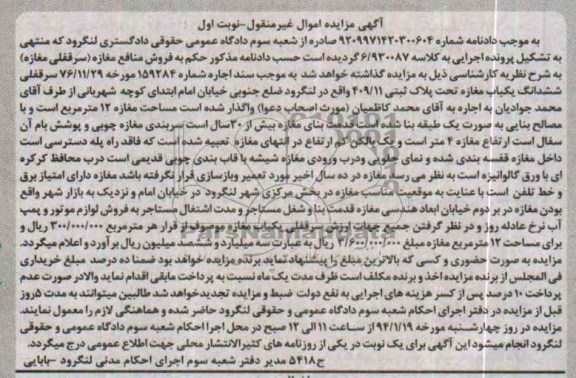 آگهی مزایده اموال غیرمنقول-نوبت اول
به موجب دادنامه شماره ۹۲۰۹۹۷۱۴۲۰۳۰۰۶۰۴ صادره از شعبه سوم دادگاه عمومی حقوقی دادگستری لنگرود که منتهی
به تشکیل پرونده اجرایی به کلاسه ۶/۹۳۰۰۸۷ گردیده است حسب دادنامه مذکور حکم به فروش منافع مغازه (سرقفلی مغازه)
به شرح نظریه کارشناسی ذیل به مزایده گذاشته خواهد شد به موجب سند اجاره شماره ۱۵۹۲۸۴ مورخه ۷۶/۱۱/۲۹ سرقفلی
ششدانگ یکباب مغازه تحت پلاک ثبتی ۴۰۹/۱۱ واقع در لنگرود ضلع جنوبی خیابان امام ابتدای کوچه شهربانی از طرف آقای
محمد جوادیان به اجاره به آقای محمد کاظمیان (مورث اصحاب دعوا) واگذار شده است مساحت مغازه ۱۲ مترمربع است و با
مصالح بنایی به صورت یک طبقه بنا شده است قدمت بنای مغازه بیش از ۳۰سال است سربندی مغازه چوبی و پوشش بام آن
سفال است ارتفاع مغازه ۴ متر است و یک بالکن کم ارتفاع در انتهای مغازه تعبیه شده است که فاقد راه پله دسترسی است
داخل مغازه قفسه بندی شده و نمای جلویی ودرب ورودی مغازه شیشه با قاب بندی چوبی قدیمی است درب محافظ کرکره
ای با ورق گالوانیزه است به نظر می رسد مغازه در ده سال اخیر مورد تعمیر وبازسازی قرار نگرفته باشد مغازه دارای امتیاز برق
و خط تلفن است با عنایت به موقعیت مناسب مغازه در بخش مرکزی شهر لنگرود در خیابان امام و نزدیک به بازار شهر واقع
بودن مغازه در بر دوم خیابان ابعاد هندسی مغازه قدمت بنا و شغل مستاجر و مدت اشتغال مستاجر به فروش لوازم موتور و پمپ
آب نرخ عادله روز و در نظر گرفتن جمیع جهات ارزش سرقفلی یکباب مغازه موصوف از قرار هر مترمربع ۳۰۰/۰۰۰/۰۰۰ ریال و
برای مساحت ۱۲ مترمربع مغازه مبلغ ۳/۶۰۰/۰۰۰/۰۰۰ ریال به عبارت سه میلیارد و ششصد میلیون ریال برآورد و اعلام میگردد.
مزایده به صورت حضوری و کسی که بالاترین مبلغ را پیشنهاد نماید برنده مزایده خواهد بود ضمنا ده درصد مبلغ خریداری
فی المجلس از برنده مزایده اخذ و برنده مکلف است ظرف مدت یک ماه نسبت به پرداخت مابقی اقدام نماید والادر صورت عدم
پرداخت ۱۰ درصد پس از کسر هزینه های اجرایی به نفع دولت ضبط و مزایده تجدیدخواهد شد طالبین میتوانند به مدت ۵روز
قبل از مزایده در دفتر اجرای احکام شعبه سوم دادگاه عمومی و حقوقی لنگرود حاضر شده و هماهنگی لازم را معمول نمایند.
مزایده در روز چهارشنبه مورخه ۹۴/۱/۱۹ از ساعت ۱۱ الی ۱۲ صبح در محل اجرا احکام شعبه سوم دادگاه عمومی و حقوقی
لنگرود انجام میشود این آگهی برای یک نوبت در یکی از روزنامه های کثیرالانتشار محلی جهت اطلاع عمومی درج میگردد.
ح۵۴۱۸ مدیر دفتر شعبه سوم اجرای احکام مدنی لنگرود -بابایی